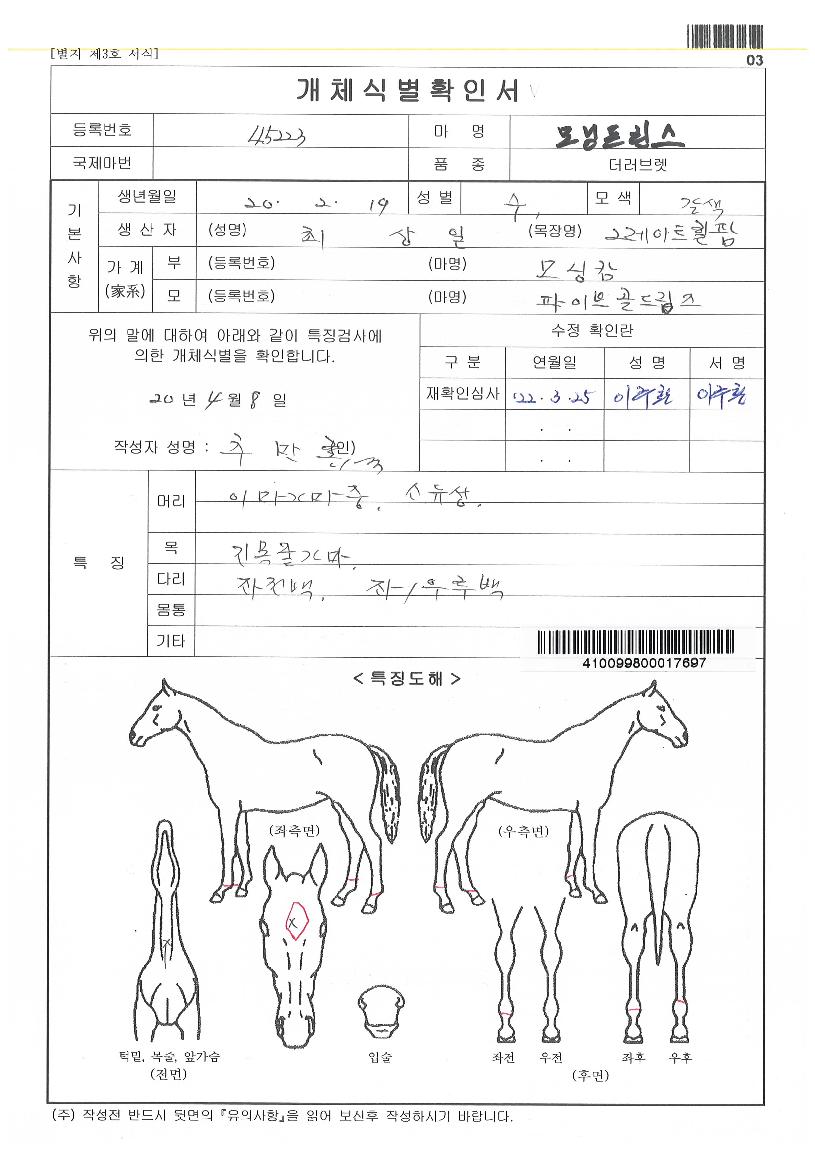 [별지 제3호 서식]
03
개체식별확인서
등록번호 45223 마 명 모닝드림스
국제마번 품 종 더러브렛
기본사항
생년월일 20. 2. 19 성별 수 모색 갈색
생 산 자 (성명) 최 상 일 (목장명) 그레이트휠팜
가 계 (家系) 부 (등록번호) (마명) 모싱캄
모 (등록번호) (마명) 파이브골드림즈
위의 말에 대하여 아래와 같이 특징검사에
의한 개체식별을 확인합니다.
20 년 4 월 8 일
작성자 성명 : 추 만 (인)
수정 확인란
구 분 연월일 성 명 서 명
재확인심사 '22. 3. 25
. .
. .
특 징
머리 이마가마중, 산유성.
목 지목줄가마.
다리 좌전백, 좌/우후백
몸통
기타
410099800017697
< 특징도해 >
(좌측면) (우측면)
턱밑, 목줄, 앞가슴 입술 좌전 우전 좌후 우후
(전면) (후면)
(주) 작성전 반드시 뒷면의 『유의사항』을 읽어 보신후 작성하시기 바랍니다.